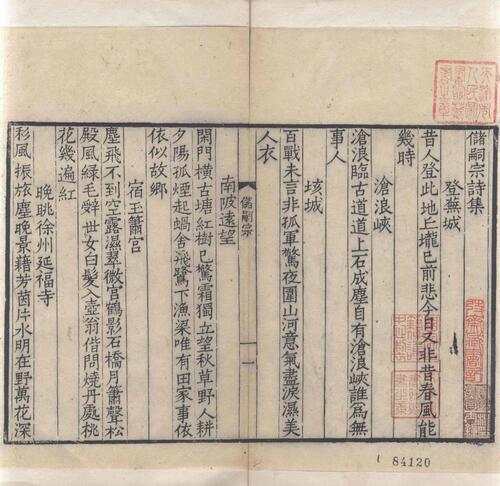 儲嗣宗詩集
登蕪城
昔人登此地丘壠已前悲今日又非昔春風能
幾時
滄浪峽
滄浪臨古道道上石成塵自有滄浪峽誰為無
事人
垓城
百戰未言非孤軍驚夜圍山河意氣盡淚濕美
人衣
儲嗣宗
一
南陂遠望
閑門橫古塘紅樹已驚霜獨立望秋草野人耕
夕陽孤煙起蝸舍飛鷺下漁梁唯有田家事依
依似故鄉
宿玉簫宮
塵飛不到空露濕翠微宮鶴影石橋月簫聲松
殿風綠毛辭世女白髮入壺翁借問燒丹處桃
花幾遍紅
晚眺徐州延福寺
杉風振旅塵晚景藉芳茵片水明在野萬花深
84120